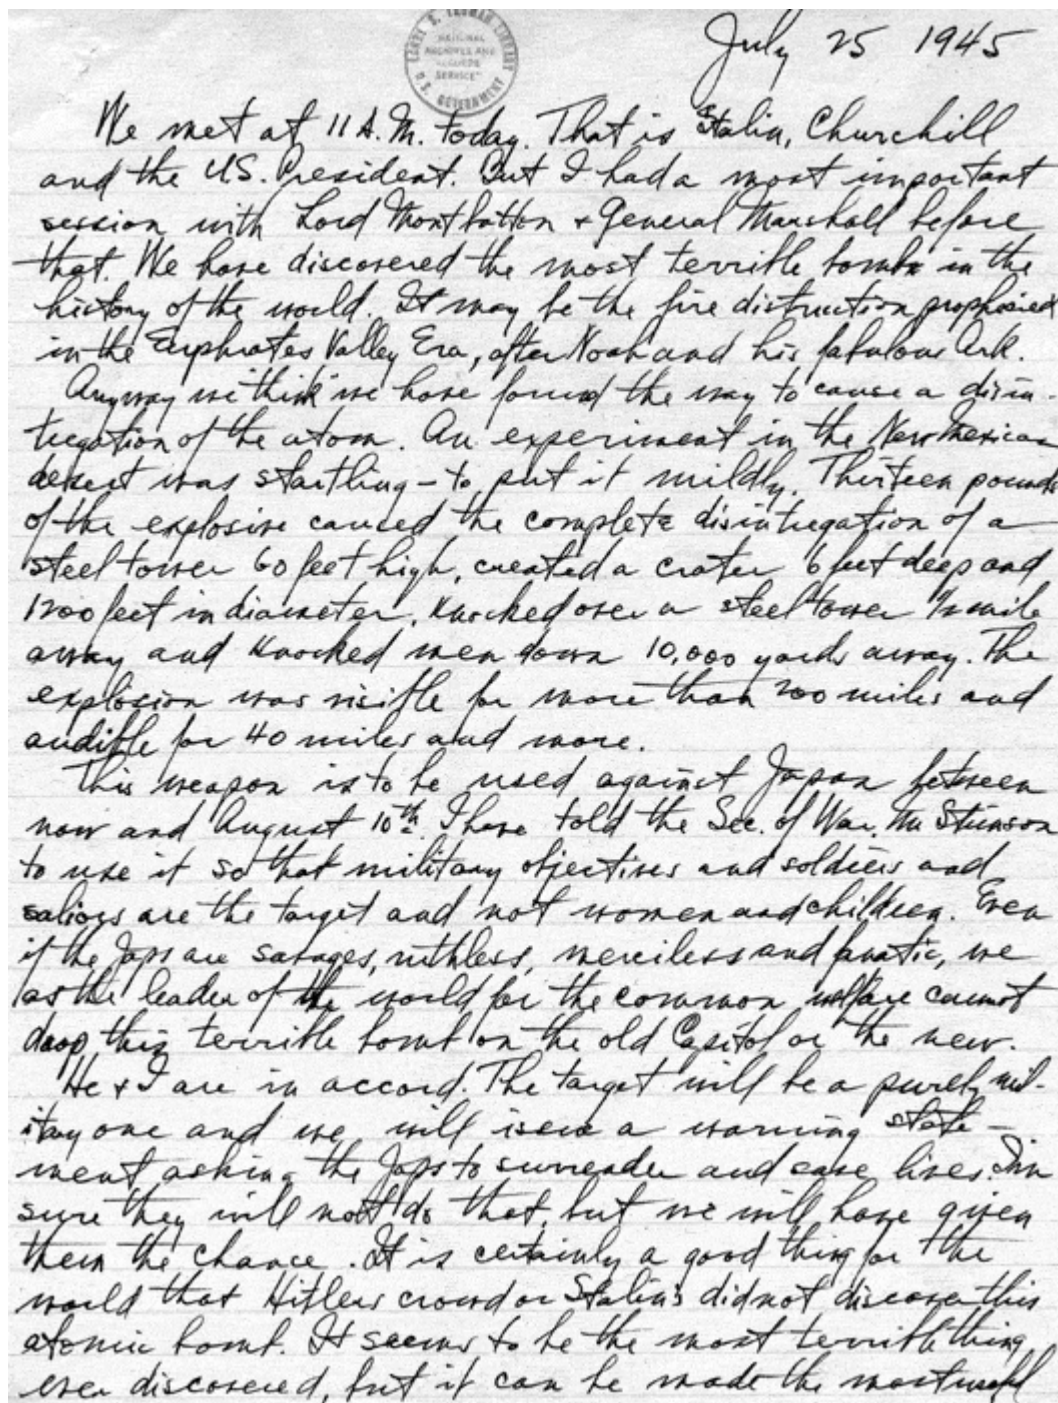 HARRY S. TRUMAN LIBRARY
NATIONAL
ARCHIVES AND
RECORDS
SERVICE
U.S. GOVERNMENT
July 25 1945
We met at 11 A.M. today. That is Stalin, Churchill
and the U.S. President. But I had a most important
session with Lord Montbatton + General Marshall before
that. We have discovered the most terrible bomb in the
history of the world. It may be the fire distruction prophesied
in the Euphrates Valley Era, after Noah and his fabulous Ark.
Anyway we "think" we have found the way to cause a disin-
tegration of the atom. An experiment in the New Mexican
desert was startling - to put it mildly. Thirteen pounds
of the explosive caused the complete disintegration of a
steel tower 60 feet high, created a crater 6 feet deep and
1200 feet in diameter, knocked over a steel tower 1/2 mile
away and knocked men down 10,000 yards away. The
explosion was visible for more than 200 miles and
audible for 40 miles and more.
This weapon is to be used against Japan between
now and August 10th. I have told the Sec. of War, Mr Stimson
to use it so that military objectives and soldiers and
saliors are the target and not women and children. Even
if the Japs are savages, ruthless, merciless and fanatic, we
as the leader of the world for the common welfare cannot
drop this terrible bomb on the old Capitol or the new.
He + I are in accord. The target will be a purely mil-
itary one and we will issue a warning state-
ment asking the Japs to surrender and save lives. I'm
sure they will not do that, but we will have given
them the chance. It is certainly a good thing for the
world that Hitlers crowd or Stalin's did not discover this
atomic bomb. It seems to be the most terrible thing
ever discovered, but it can be made the most useful